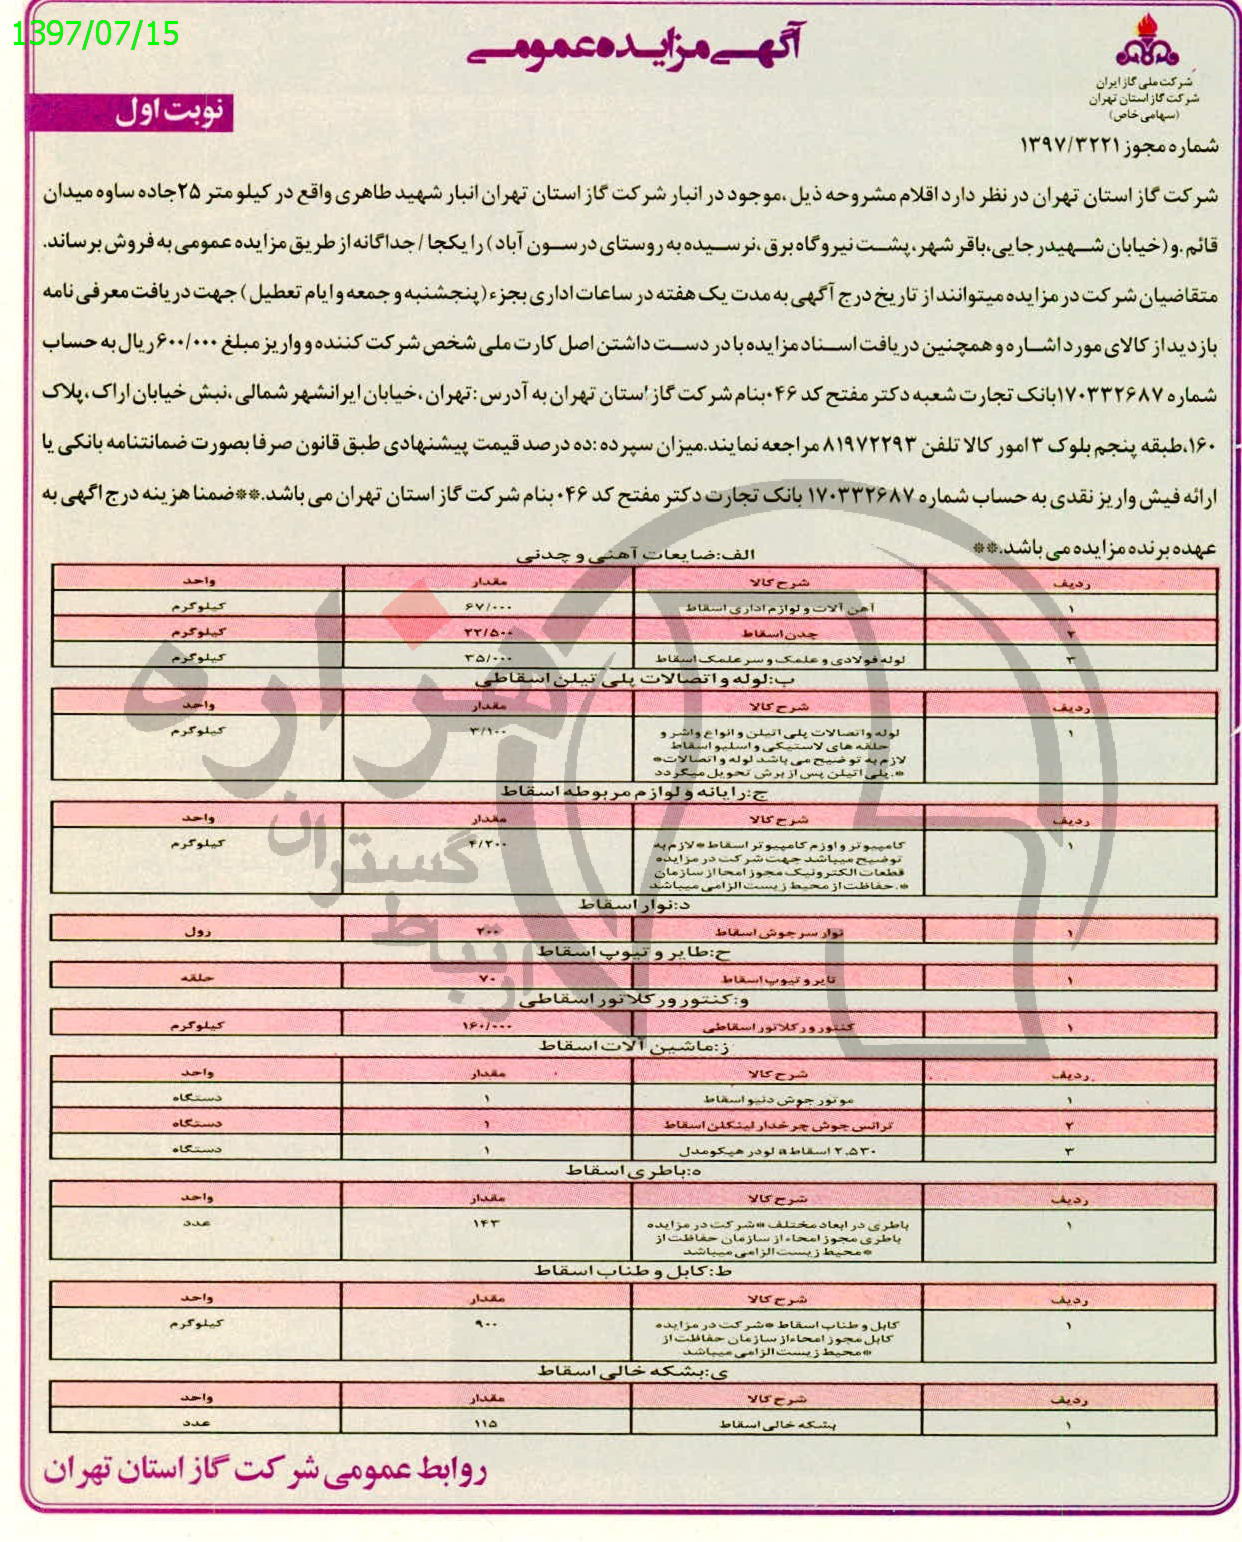 1397/07/15
آگهی مزایده عمومی
شرکت ملی گاز ایران
شرکت گاز استان تهران
(سهامی خاص)
نوبت اول
شماره مجوز ۱۳۹۷/۳۲۲۱
شرکت گاز استان تهران در نظر دارد اقلام مشروحه ذیل ،موجود در انبار شرکت گاز استان تهران انبار شهید طاهری واقع در کیلو متر ۲۵جاده ساوه میدان
قائم .و (خیابان شهیدرجایی،باقر شهر، پشت نیروگاه برق ،نرسیده به روستای درسون آباد) را یکجا / جداگانه از طریق مزایده عمومی به فروش برساند.
متقاضیان شرکت در مزایده میتوانند از تاریخ درج آگهی به مدت یک هفته در ساعات اداری بجزء (پنجشنبه و جمعه و ایام تعطیل) جهت دریافت معرفی نامه
بازدید از کالای مورد اشاره و همچنین دریافت اسناد مزایده با در دست داشتن اصل کارت ملی شخص شرکت کننده و واریز مبلغ ۶۰۰/۰۰۰ریال به حساب
شماره ۱۷۰۳۳۲۶۸۷بانک تجارت شعبه دکتر مفتح کد ۰۴۶بنام شرکت گاز استان تهران به آدرس :تهران ،خیابان ایرانشهر شمالی ،نبش خیابان اراک ،پلاک
۱۶۰،طبقه پنجم بلوک ۳ امور کالا تلفن ۸۱۹۷۲۲۹۳ مراجعه نمایند.میزان سپرده :ده درصد قیمت پیشنهادی طبق قانون صرفا بصورت ضمانتنامه بانکی یا
ارائه فیش واریز نقدی به حساب شماره ۱۷۰۳۳۲۶۸۷ بانک تجارت دکتر مفتح کد ۰۴۶ بنام شرکت گاز استان تهران می باشد.**ضمنا هزینه درج اگهی به
عهده برنده مزایده می باشد.**
الف:ضایعات آهنی و چدنی
ردیف شرح کالا مقدار واحد
۱ آهن آلات و لوازم اداری اسقاط ۶۷/۰۰۰ کیلوگرم
۲ چدن اسقاط ۲۲/۵۰۰ کیلوگرم
۳ لوله فولادی و علمک و سر علمک اسقاط ۳۵/۰۰۰ کیلوگرم
ب:لوله و اتصالات پلی تیلن اسقاطی
ردیف شرح کالا مقدار واحد
۱ لوله و اتصالات پلی اتیلن و انواع واشر و ۳/۱۰۰ کیلوگرم
حلقه های لاستیکی و اسلیو اسقاط
لازم به توضیح می باشد لوله و اتصالات*
*.پلی اتیلن پس از برش تحویل میگردد
ج:رایانه و لوازم مربوطه اسقاط
ردیف شرح کالا مقدار واحد
۱ کامپیوتر و اوزم کامپیوتر اسقاط *لازم به ۴/۲۰۰ کیلوگرم
توضیح میباشد جهت شرکت در مزایده
قطعات الکترونیک مجوز امحا از سازمان
*.حفاظت از محیط زیست الزامی میباشد
د:نوار اسقاط
۱ نوار سرجوش اسقاط ۲۰۰ رول
ح:طایر و تیوپ اسقاط
۱ تایر و تیوپ اسقاط ۷۰ حلقه
و:کنتور ورکلاتور اسقاطی
۱ کنتور و رکلاتور اسقاطی ۱۶۰/۰۰۰ کیلوگرم
ز:ماشین آلات اسقاط
ردیف شرح کالا مقدار واحد
۱ موتور جوش دنیو اسقاط ۱ دستگاه
۲ ترانس جوش چرخدار لینکلن اسقاط ۱ دستگاه
۳ ۲.۵۳۰ اسقاط a لودر هپکومدل ۱ دستگاه
ه:باطری اسقاط
ردیف شرح کالا مقدار واحد
۱ باطری در ابعاد مختلف *شرکت در مزایده ۱۴۳ عدد
باطری مجوز امحاء از سازمان حفاظت از
*محیط زیست الزامی میباشد
ط:کابل و طناب اسقاط
ردیف شرح کالا مقدار واحد
۱ کابل و طناب اسقاط *شرکت در مزایده ۹۰۰ کیلوگرم
کابل مجوز امحاءاز سازمان حفاظت از
*محیط زیست الزامی میباشد
ی:بشکه خالی اسقاط
ردیف شرح کالا مقدار واحد
۱ بشکه خالی اسقاط ۱۱۵ عدد
روابط عمومی شرکت گاز استان تهران
هزاره
گستران
ارتباط